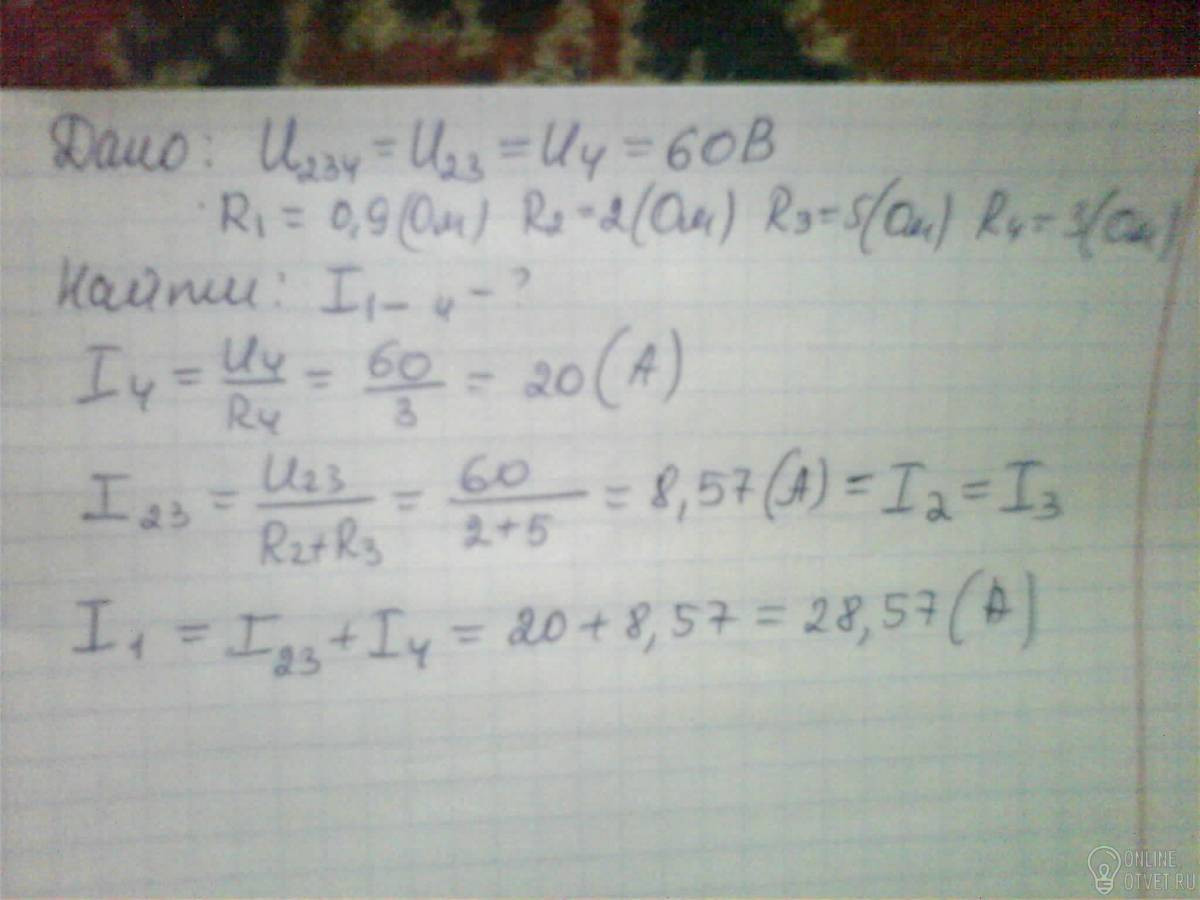 Дано: U₂₃₄ = U₂₃ = U₄ = 60В
R₁ = 0,9(Ом) R₂ = 2(Ом) R₃ = 5(Ом) R₄ = 3(Ом)
Найти: I₁₋₄ - ?
I₄ = U₄/R₄ = 60/3 = 20(А)
I₂₃ = U₂₃/(R₂+R₃) = 60/(2+5) = 8,57(А) = I₂ = I₃
I₁ = I₂₃ + I₄ = 20 + 8,57 = 28,57(А)
ONLINE
OTVET.RU